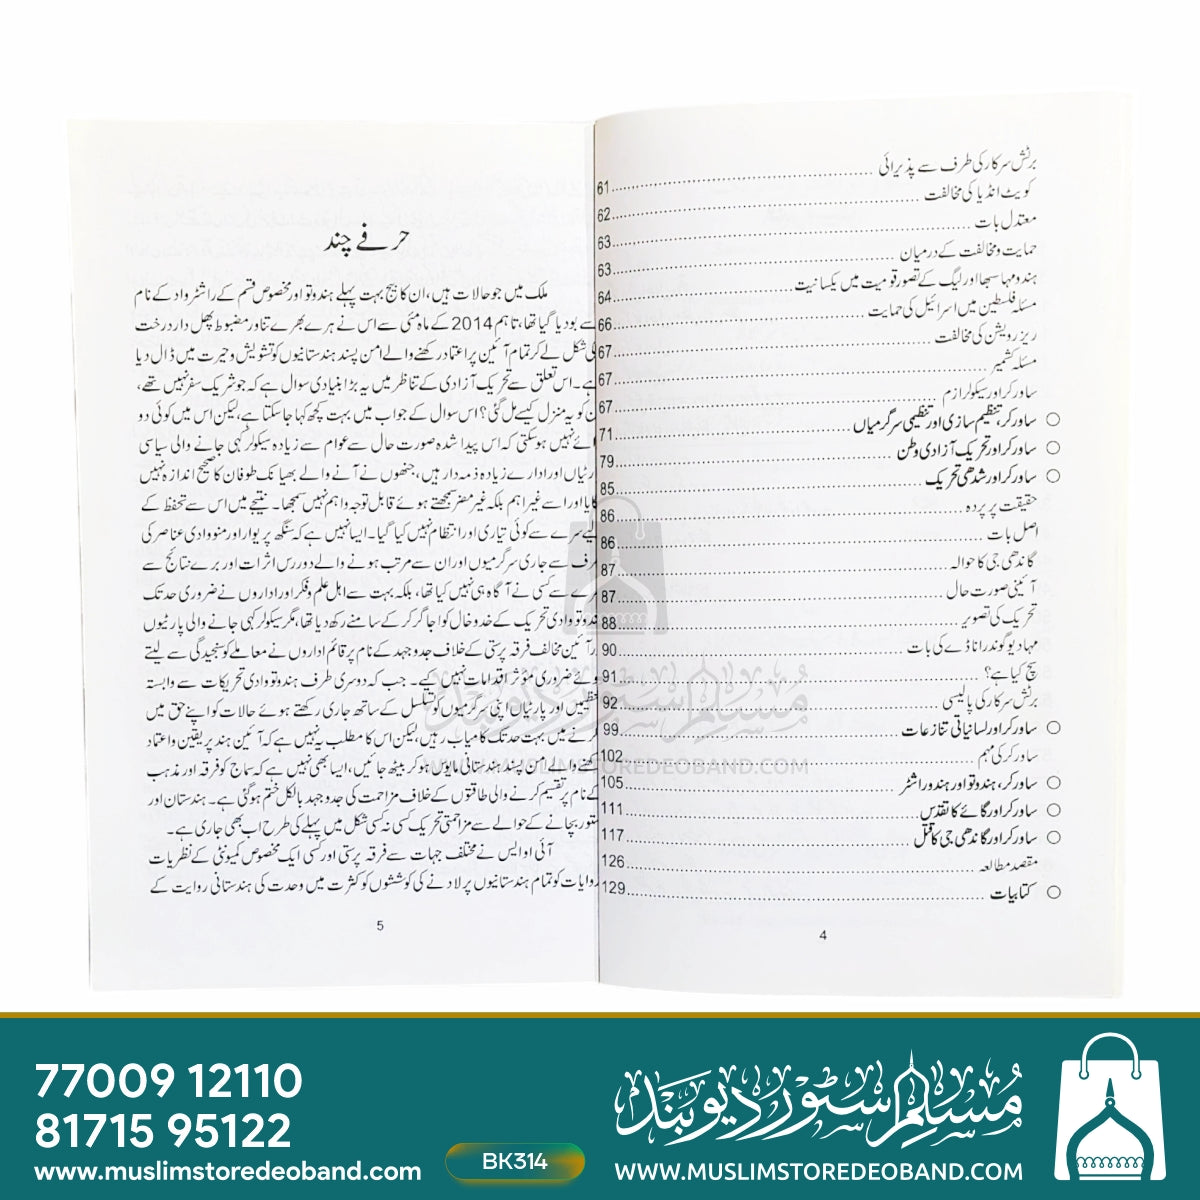 برٹش سرکار کی طرف سے پذیرائی 61
کویٹ انڈیا کی مخالفت 62
معتدل بات 63
حمایت و مخالفت کے درمیان 63
ہندو مہا سبھا اور لیگ کے تصور قومیت میں یکسانیت 64
مسئلہ فلسطین میں اسرائیل کی حمایت 66
ریزرویشن کی مخالفت 67
مسئلہ کشمیر 67
ساورکر اور سیکولرازم 67
○ ساورکر، تنظیم سازی اور تنظیمی سرگرمیاں 71
○ ساورکر اور تحریک آزادی وطن 79
○ ساورکر اور شدھی تحریک 85
حقیقت پر پردہ 86
اصل بات 86
گاندھی جی کا حوالہ 87
آئینی صورت حال 87
تحریک کی تصویر 88
مہادیو گوند رانا ڈے کی بات 90
سچ کیا ہے؟ 91
برٹش سرکار کی پالیسی 92
○ ساورکر اور لسانیاتی تنازعات 99
ساورکر کی مہم 102
○ ساورکر، ہندوتو اور ہندو راشٹر 105
○ ساورکر اور گائے کا تقدس 111
○ ساورکر اور گاندھی جی کا قتل 117
مقصد مطالعہ 126
○ کتابیات 129
4
حرفے چند
ملک میں جو حالات ہیں، ان کا بیج بہت پہلے ہندوتو اور مخصوص قسم کے راشٹر واد کے نام
سے بو دیا گیا تھا، تاہم 2014 کے ماہ مئی سے اس نے ہرے بھرے تناور مضبوط پھل دار درخت
کی شکل لے کر تمام آئین پر اعتماد رکھنے والے امن پسند ہندستانیوں کو تشویش و حیرت میں ڈال دیا
ہے۔ اس تعلق سے تحریک آزادی کے تناظر میں یہ بڑا بنیادی سوال ہے کہ جو شریک سفر نہیں تھے،
ان کو یہ منزل کیسے مل گئی؟ اس سوال کے جواب میں بہت کچھ کہا جا سکتا ہے، لیکن اس میں کوئی دو
رائے نہیں ہو سکتی کہ اس پیدا شدہ صورت حال سے عوام سے زیادہ سیکولر کہی جانے والی سیاسی
پارٹیاں اور ادارے زیادہ ذمہ دار ہیں، جنھوں نے آنے والے بھیانک طوفان کا صحیح اندازہ نہیں
لگایا اور اسے غیر اہم بلکہ غیر مضر سمجھتے ہوئے قابل توجہ و اہم نہیں سمجھا۔ نتیجے میں اس سے تحفظ کے
لیے سرے سے کوئی تیاری اور انتظام نہیں کیا گیا۔ ایسا نہیں ہے کہ سنگھ پریوار اور منووادی عناصر کی
طرف سے جاری سرگرمیوں اور ان سے مرتب ہونے والے دور رس اثرات اور برے نتائج سے
سرے سے کسی نے آگاہ ہی نہیں کیا تھا، بلکہ بہت سے اہل علم و فکر اور اداروں نے ضروری حد تک
ہندوتووادی تحریک کے خدوخال کو اجاگر کر کے سامنے رکھ دیا تھا، مگر سیکولر کہی جانے والی پارٹیوں
اور آئین مخالف فرقہ پرستی کے خلاف جدوجہد کے نام پر قائم اداروں نے معاملے کو سنجیدگی سے لیتے
ہوئے ضروری مؤثر اقدامات نہیں کیے۔ جب کہ دوسری طرف ہندوتووادی تحریکات سے وابستہ
تنظیمیں اور پارٹیاں اپنی سرگرمیوں کو تسلسل کے ساتھ جاری رکھتے ہوئے حالات کو اپنے حق میں
کرنے میں بہت حد تک کامیاب رہیں، لیکن اس کا مطلب یہ نہیں ہے کہ آئین ہند پر یقین و اعتماد
رکھنے والے امن پسند ہندستانی مایوس ہو کر بیٹھ جائیں، ایسا بھی نہیں ہے کہ سماج کو فرقہ اور مذہب
کے نام پر تقسیم کرنے والی طاقتوں کے خلاف مزاحمت کی جدوجہد بالکل ختم ہو گئی ہے۔ ہندستان اور
دستور بچانے کے حوالے سے مزاحمتی تحریک کسی نہ کسی شکل میں پہلے کی طرح اب بھی جاری ہے۔
آئی او ایس نے مختلف جہات سے فرقہ پرستی اور کسی ایک مخصوص کمیونٹی کے نظریات
روایات کو تمام ہندستانیوں پر لادنے کی کوششوں کو کثرت میں وحدت کی ہندستانی روایت کے
5
مسلم سٹور دیوبند
WWW.MUSLIMSTOREDEOBAND.COM
77009 12110
81715 95122
www.muslimstoredeoband.com
BK314
مسلم سٹور دیوبند
WWW.MUSLIMSTOREDEOBAND.COM